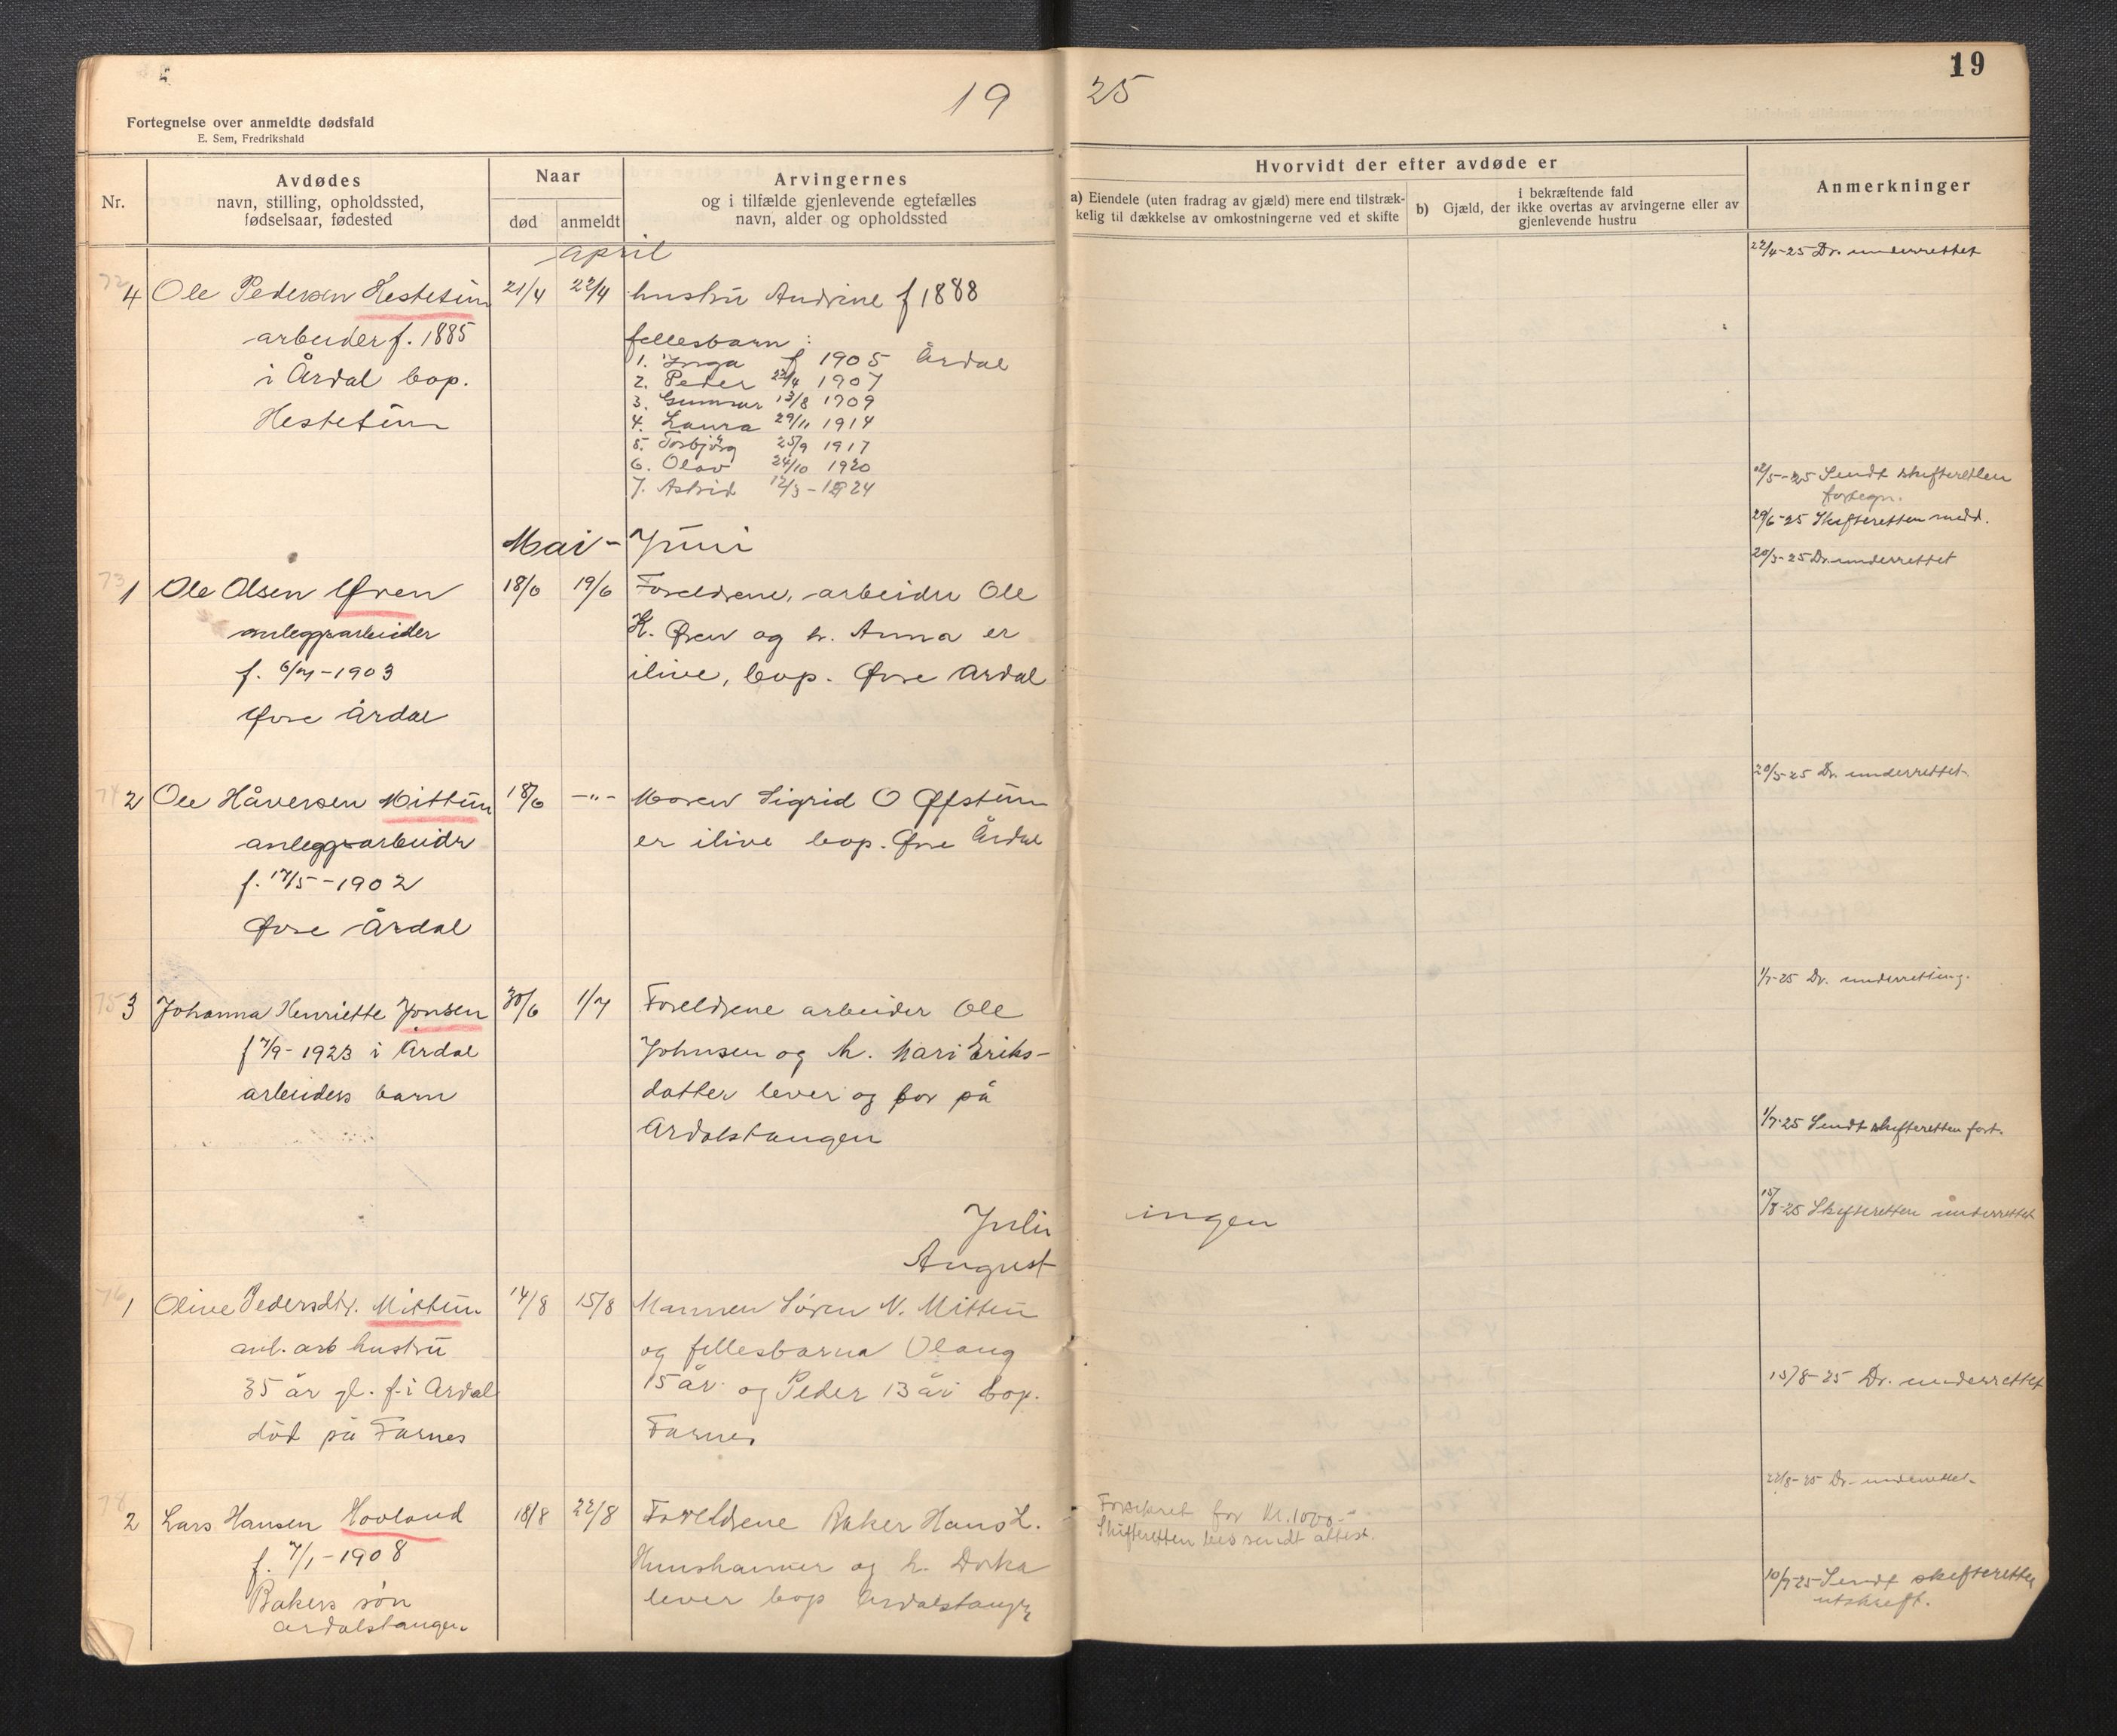 19 25
19
Fortegnelse over anmeldte dødsfald
E. Sem, Fredrikshald
Nr.
Avdødes
navn, stilling, opholdssted,
fødselsaar, fødested
Naar
død
anmeldt
Arvingernes
og i tilfælde gjenlevende egtefælles
navn, alder og opholdssted
Hvorvidt der efter avdøde er
a) Eiendele (uten fradrag av gjæld) mere end tilstræk-
kelig til dækkelse av omkostningerne ved et skifte
i bekræftende fald
b) Gjæld, der ikke overtas av arvingerne eller av
gjenlevende hustru
Anmerkninger
april
22/4-25 Dr. underrettet
72
4 Ole Pedersen Hestetun 21/4 22/4 hustru Andrine f 1888
arbeider f. 1885
i Årdal bop.
Hestetun
fellesbarn :
1. Inga f 1905 Årdal
2. Peder 22/4 1907
3. Gunnar 13/8 1909
4. Laura 29/11 1914
5. Torbjörg 25/9 1917
6. Olav 24/10 1920
7. Astrid 12/3 - 1924
2/5-25 Sendt skifteretten
fortegn.
29/6-25 Skifteretten medd.
Mai - Juni
20/5-25 Dr. underrettet
73
1 Ole Olsen Øren 18/6 19/6 Foreldrene, arbeider Ole
anleggsarbeider K. Øren og h. Anna er
f. 6/7-1903 ilive, bop. Øvre Årdal
Øvre Årdal
20/5-25 Dr. underrettet
74
2 Ole Håversen Mittun 18/6 -"- Moren Sigrid O Øfstun
anleggsarbeider er ilive bop. Øvre Årdal
f. 17/5-1902
Øvre Årdal
1/7-25 Dr. underretting.
75
3 Johanna Henriette Jonsen 30/6 1/7 Foreldrene arbeider Ole
f 7/9-1923 i Årdal Johnsen og h. Mari Eriks-
arbeiders barn datter lever og bor på
Årdalstangen
1/7-25 Sendt skifteretten fort.
Juli ingen
15/8-25 Skifteretten underrettet
August
76
1 Olive Pedersdtr. Mittun 14/8 15/8 Mannen Søren N. Mittun
anl. arb hustru og fellesbarna Olaug
35 år gl. f. i Årdal 15 år og Peder 13 år bop.
död på Farnes Farnes
15/8-25 Dr. underrettet
22/8-25 Dr. underrettet.
78
2 Lars Hansen Hovland 18/8 22/8 Foreldrene Baker Hans L.
f. 7/1-1908 og h. Dorka
Bakers sön lever bop Årdalstangen
Årdalstangen
Forsikret for kr. 1000.-
Skifteretten sendt attest.
10/9-25 Sendt skifteretten
utskrift.